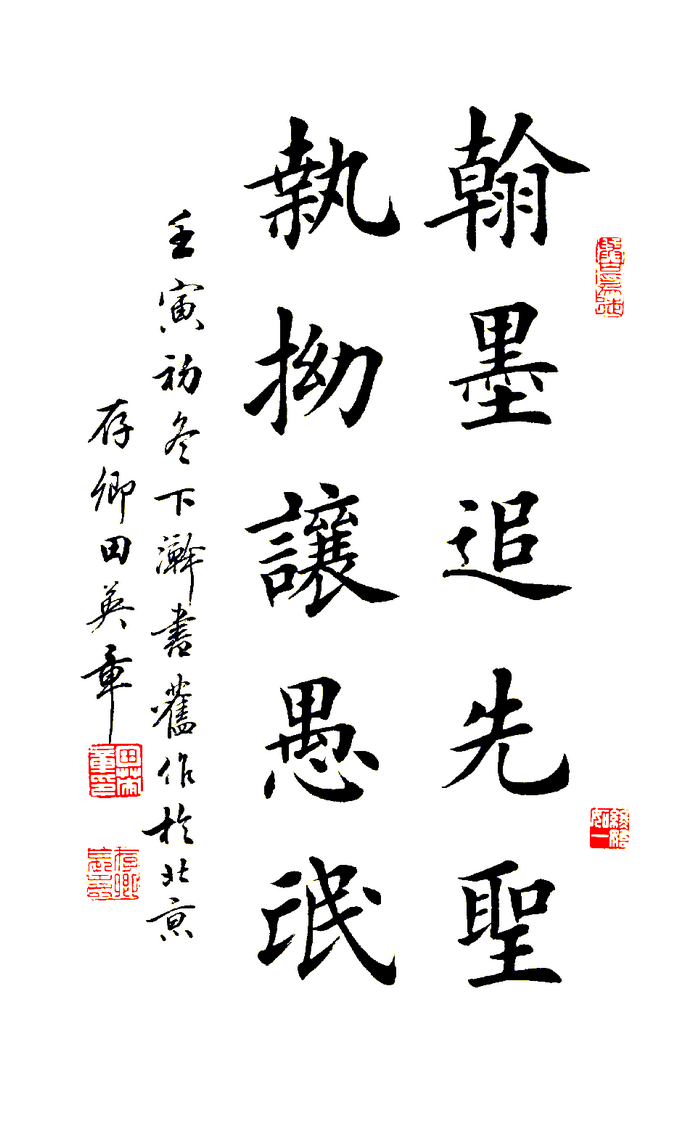 翰墨追先聖
執拗讓愚氓
壬寅初冬下澣書舊作於北京
存卿田英章